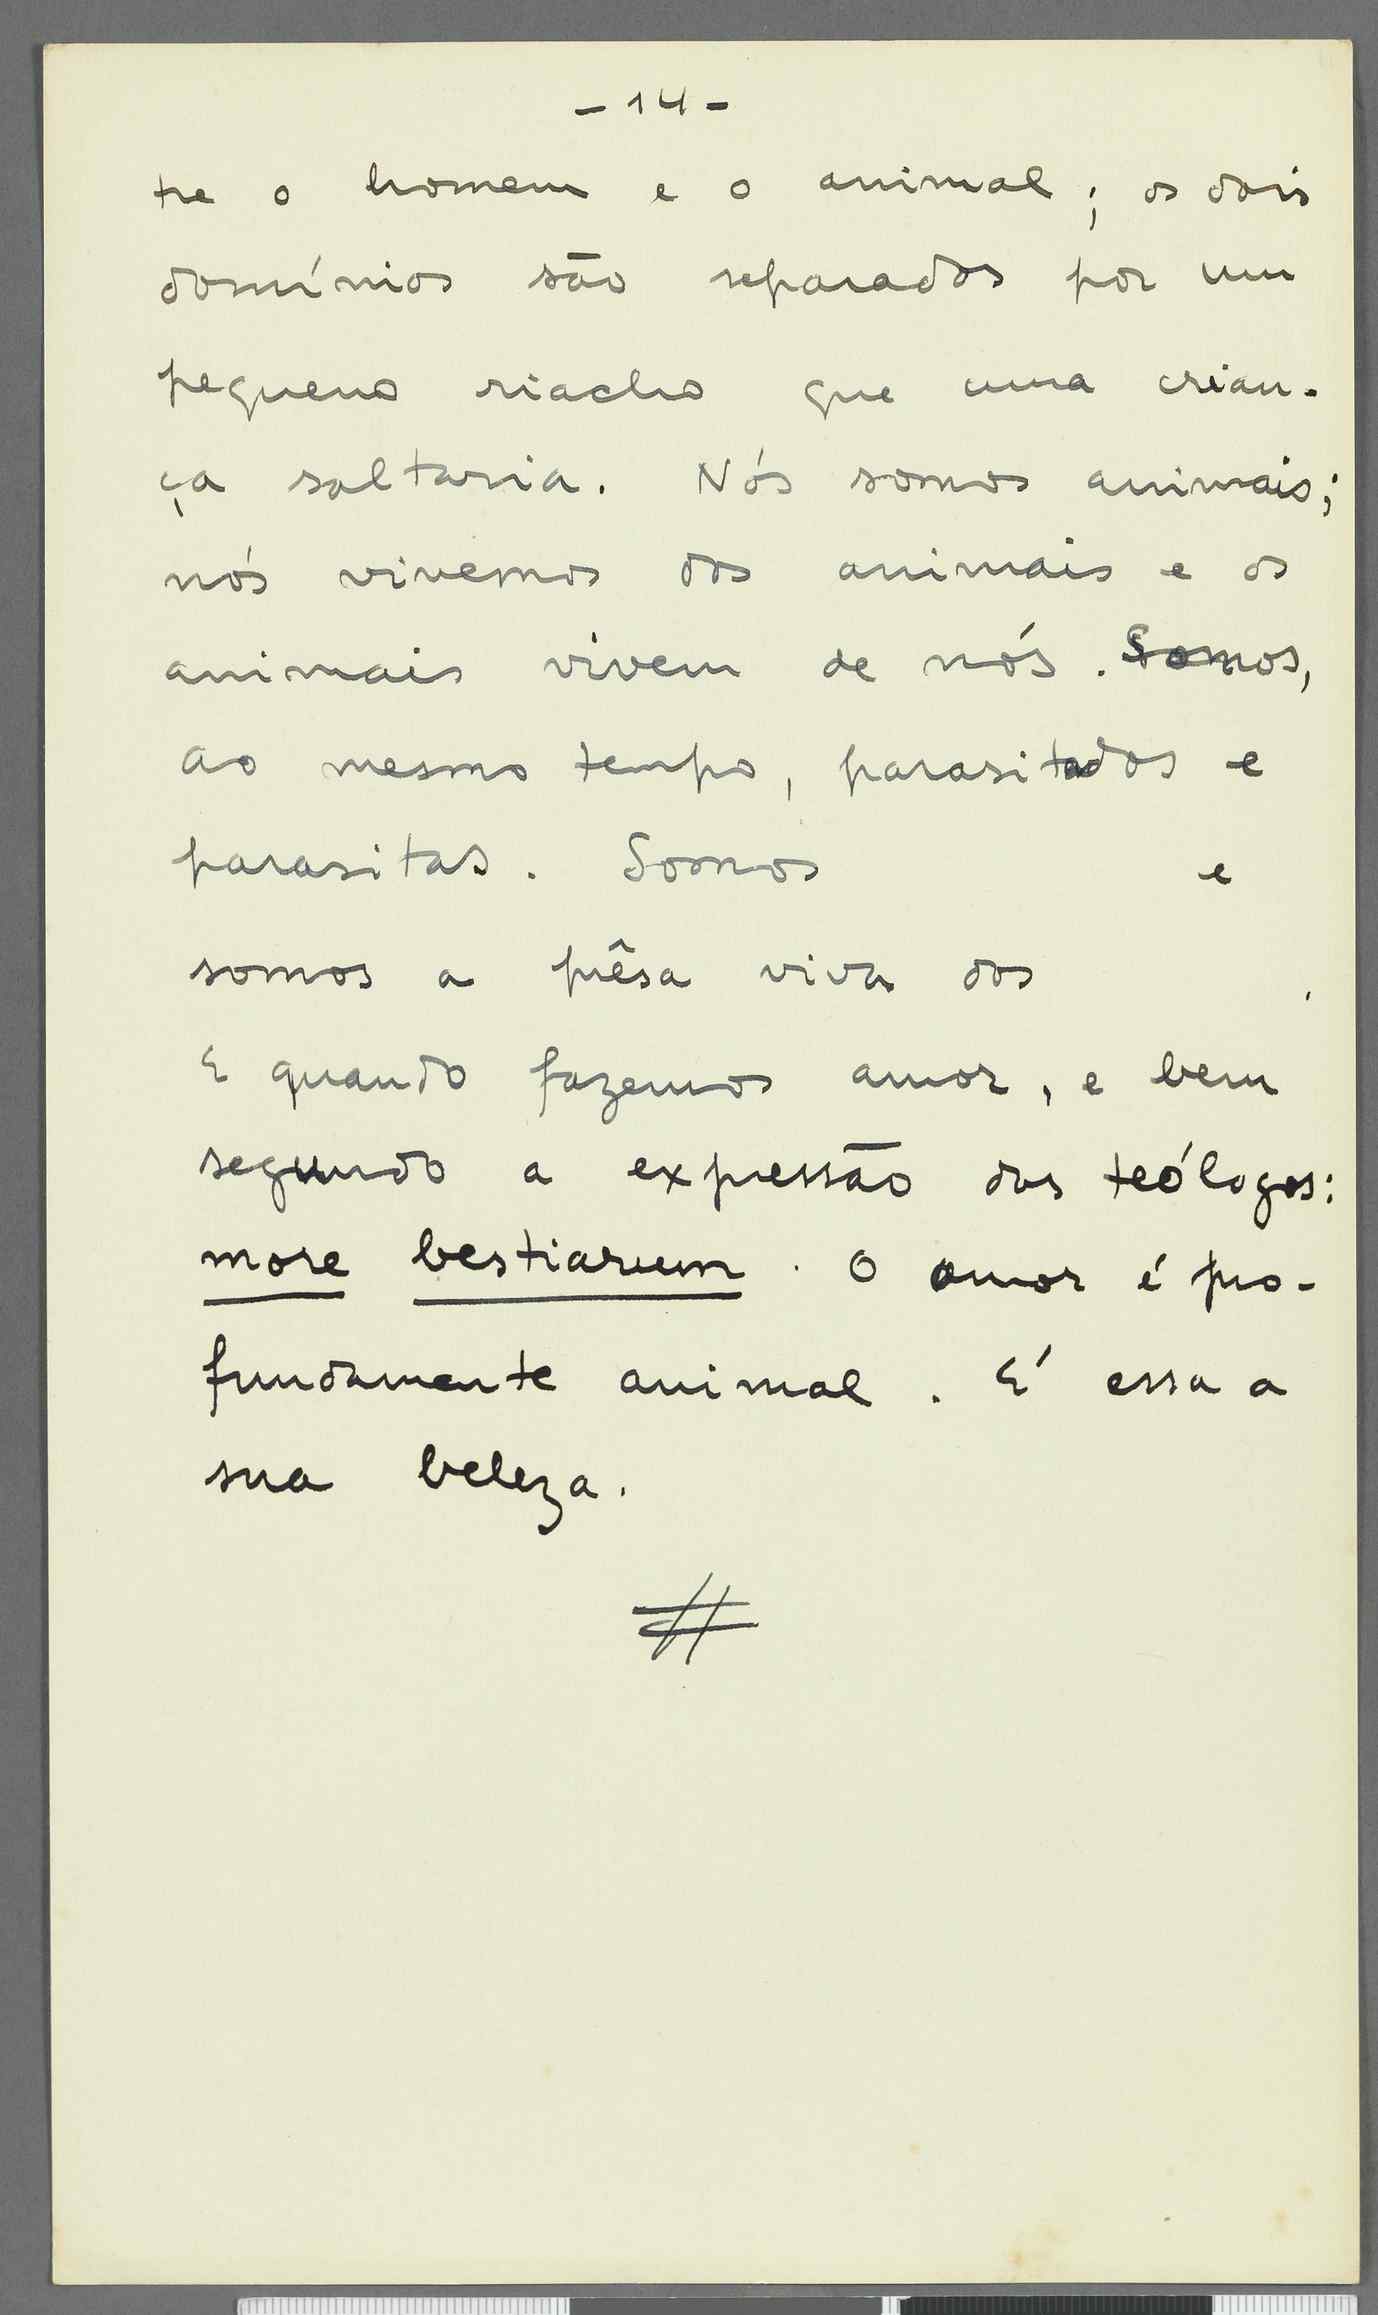 - 14 -
tre o homem e o animal; os dois
domínios são separados por um
pequeno riacho que uma crian-
ça saltaria. Nós somos animais;
nós vivemos dos animais e os
animais vivem de nós. Somos,
ao mesmo tempo, parasitados e
parasitas. Somos e
somos a prêsa viva dos .
E quando fazemos amor, e bem
segundo a expressão dos teólogos:
more bestiarum. O amor é pro-
fundamente animal. E' essa a
sua beleza.